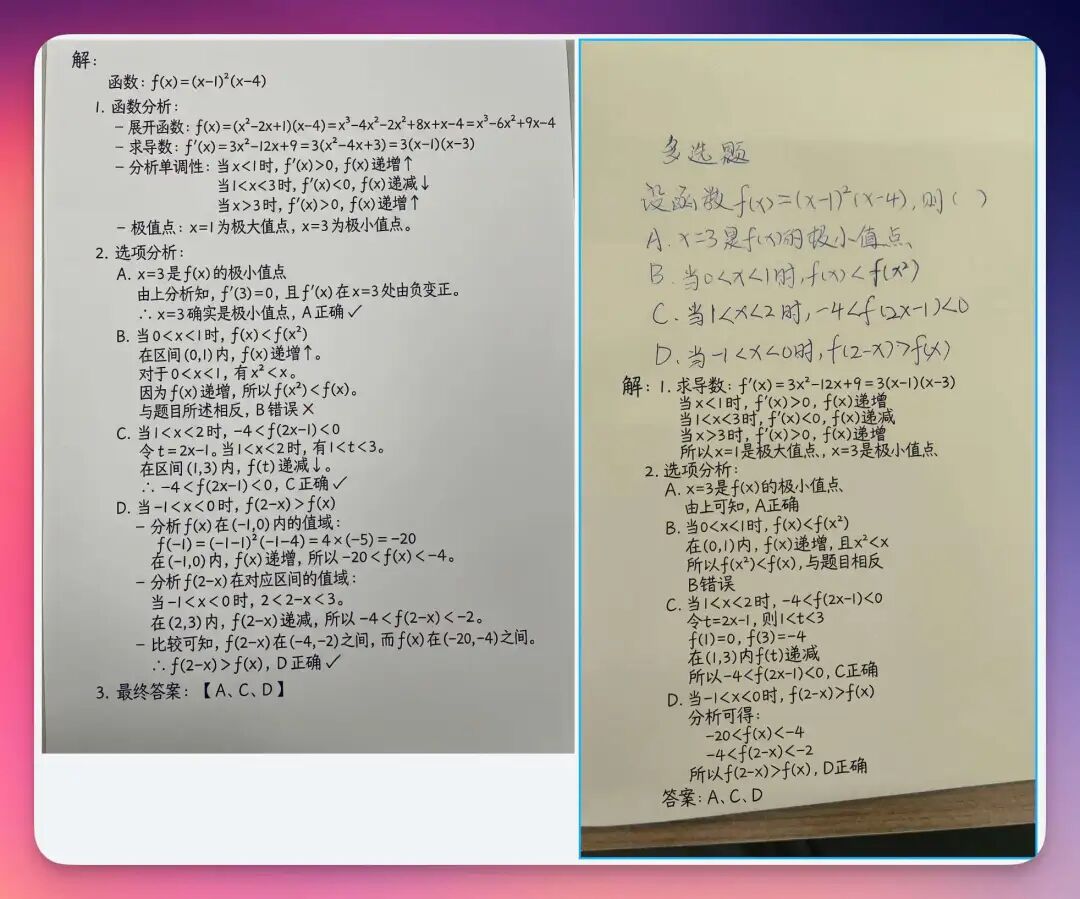 解：
函数：f(x)=(x-1)²(x-4)
1. 函数分析：
- 展开函数：f(x)=(x²-2x+1)(x-4)=x³-4x²-2x²+8x+x-4=x³-6x²+9x-4
- 求导数：f′(x)=3x²-12x+9=3(x²-4x+3)=3(x-1)(x-3)
- 分析单调性：当x<1时，f′(x)>0，f(x)递增↑
当1<x<3时，f′(x)<0，f(x)递减↓
当x>3时，f′(x)>0，f(x)递增↑
- 极值点：x=1为极大值点，x=3为极小值点。
2. 选项分析：
A. x=3是f(x)的极小值点
由上分析知，f′(3)=0，且f′(x)在x=3处由负变正。
∴ x=3确实是极小值点，A正确✓
B. 当0<x<1时，f(x)<f(x²)
在区间(0,1)内，f(x)递增↑。
对于0<x<1，有x²<x。
因为f(x)递增，所以f(x²)<f(x)。
与题目所述相反，B错误✗
C. 当1<x<2时，-4<f(2x-1)<0
令t=2x-1。当1<x<2时，有1<t<3。
在区间(1,3)内，f(t)递减↓。
∴ -4<f(2x-1)<0，C正确✓
D. 当-1<x<0时，f(2-x)>f(x)
- 分析f(x)在(-1,0)内的值域：
f(-1)=(-1-1)²(-1-4)=4×(-5)=-20
在(-1,0)内，f(x)递增，所以-20<f(x)<-4。
- 分析f(2-x)在对应区间的值域：
当-1<x<0时，2<2-x<3。
在(2,3)内，f(2-x)递减，所以-4<f(2-x)<-2。
- 比较可知，f(2-x)在(-4,-2)之间，而f(x)在(-20,-4)之间。
∴ f(2-x)>f(x)，D正确✓
3. 最终答案：【A、C、D】
多选题
设函数f(x)=(x-1)²(x-4)，则( )
A. x=3是f(x)的极小值点、
B. 当0<x<1时，f(x)<f(x²)
C. 当1<x<2时，-4<f(2x-1)<0
D. 当-1<x<0时，f(2-x)>f(x)
解：1. 求导数：f′(x)=3x²-12x+9=3(x-1)(x-3)
当x<1时，f′(x)>0，f(x)递增
当1<x<3时，f′(x)<0，f(x)递减
当x>3时，f′(x)>0，f(x)递增
所以x=1是极大值点，x=3是极小值点
2. 选项分析：
A. x=3是f(x)的极小值点
由上可知，A正确
B. 当0<x<1时，f(x)<f(x²)
在(0,1)内，f(x)递增，且x²<x
所以f(x²)<f(x)，与题目相反
B错误
C. 当1<x<2时，-4<f(2x-1)<0
令t=2x-1，则1<t<3
f(1)=0，f(3)=-4
在(1,3)内f(t)递减
所以-4<f(2x-1)<0，C正确
D. 当-1<x<0时，f(2-x)>f(x)
分析可得：
-20<f(x)<-4
-4<f(2-x)<-2
所以f(2-x)>f(x)，D正确
答案：A、C、D